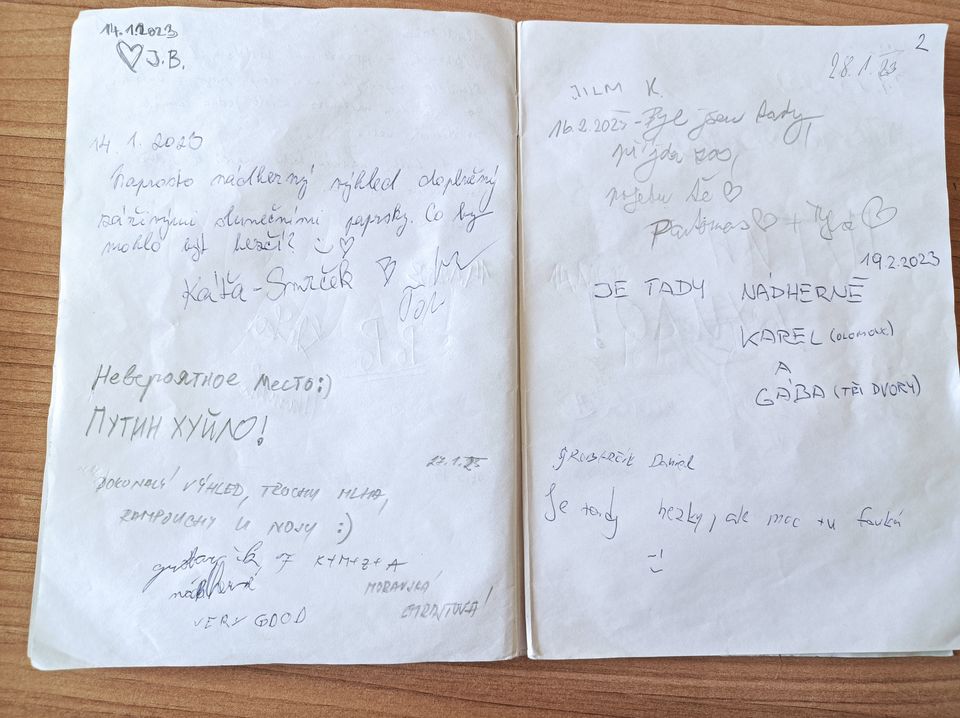 14.1.2023
♡ J.B.
14.1.2023
Naprosto nádherný výhled doplněný
zářivými slunečními paprsky. Co by
mohlo být hezčí? ♡
Káťa-Smrček
Невероятное место:)
ПУТИН ХУЙЛО!
27.1.23
DOKONALÝ VÝHLED, TROCHY MLHA,
RAMPOUCHY U NOSU :)
K+M+Z+A
nádherné
MORAVSKÁ
VERY GOOD
2
28.1.23
JILM K.
16.2.2023 - Byl jsem tady,
příjdu zas,
♡
19.2.2023
JE TADY NÁDHERNĚ
KAREL (OLOMOUC)
A
GÁBA (TŘI DVORY)
Daniel
Je tady hezky, ale moc tu fouká